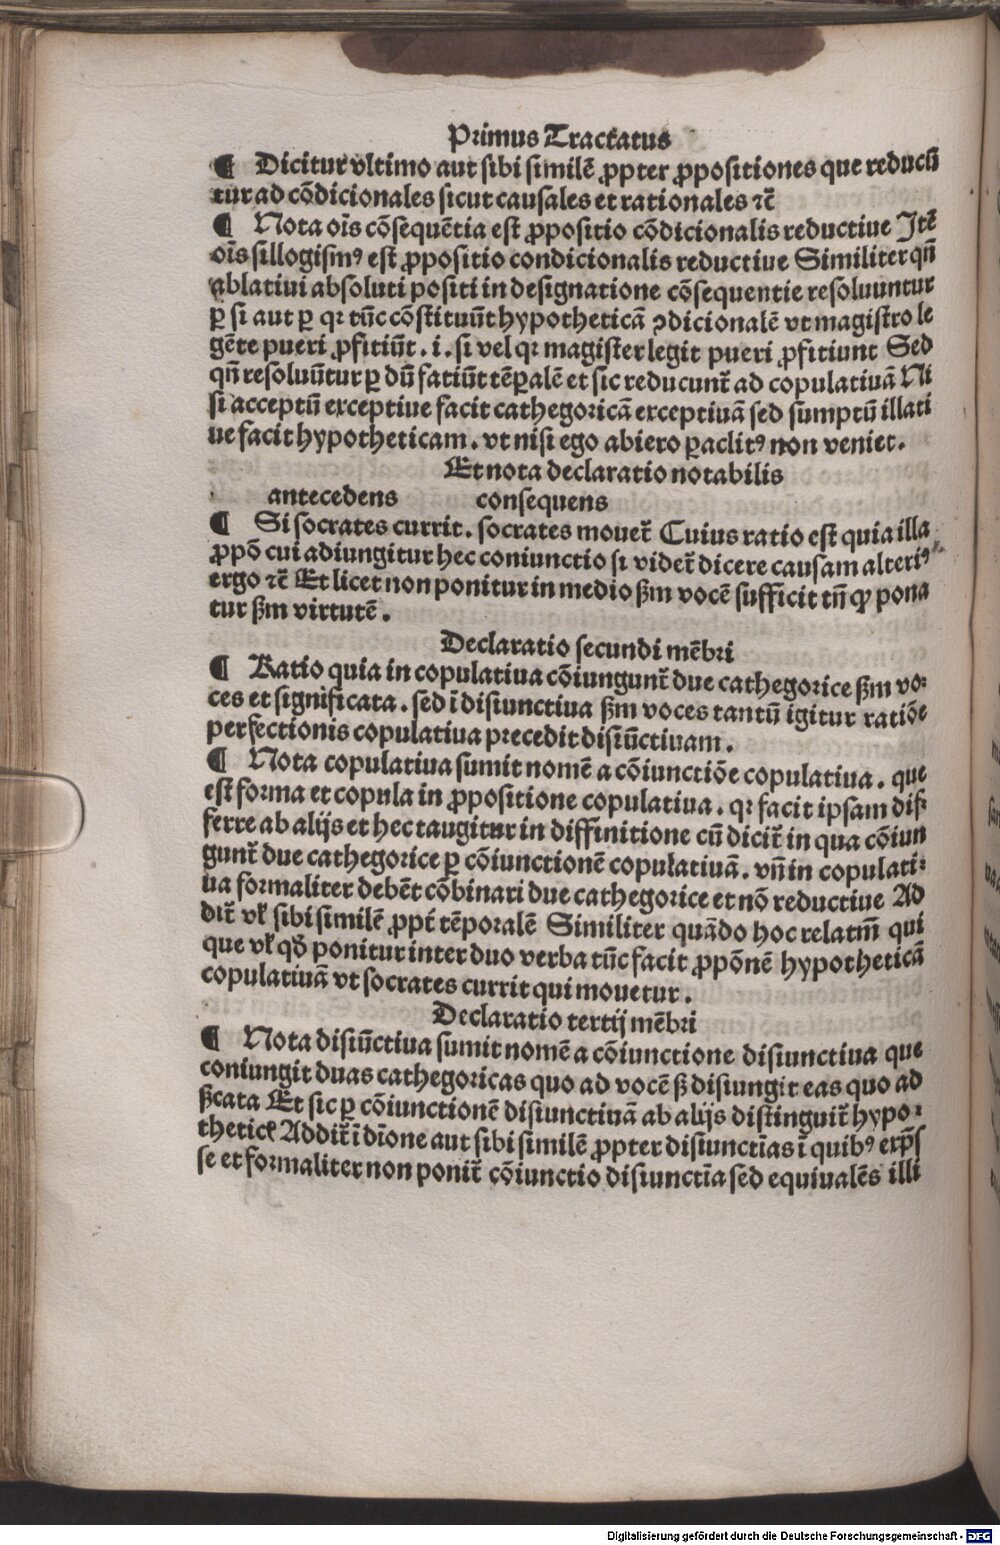 Primus Tractatus
¶ Dicitur vltimo aut sibi similē ꝓpter ꝓpositiones que reducū
tur ad cōdicionales sicut causales et rationales ⁊c̄
¶ Nota oīs cōsequētia est ꝓpositio cōdicionalis reductiue Itē
oīs sillogismꝰ est ꝓpositio condicionalis reductiue Similiter qn̄
ablatiui absoluti positi in designatione cōsequentie resoluuntur
ꝑ si aut ꝑ qꝛ tūc cōstituūt hypotheticā ꝯdicionalē vt magistro le
gēte pueri ꝓfitiūt . i . si vel qꝛ magister legit pueri ꝓfitiunt Sed
qn̄ resoluūtur ꝑ dū fatiūt tēꝑalē et sic reducunt̄ ad copulatiuā Ni
si acceptū exceptiue facit cathegoricā exceptiuā sed sumptū illati
ue facit hypotheticam . vt nisi ego abiero ꝑaclitꝰ non veniet .
Et nota declaratio notabilis
antecedens consequens
¶ Si socrates currit . socrates mouet̄ Cuius ratio est quia illa
ꝓpō cui adiungitur hec coniunctio si videt̄ dicere causam alteriꝰ
ergo ⁊c̄ Et licet non ponitur in medio ẜm vocē sufficit tn̄ ꝙ pona
tur ẜm virtutē .
Declaratio secundi mēbri
¶ Ratio quia in copulatiua cōiungunt̄ due cathegorice ẜm vo⸗
ces et significata . sed ī disiunctiua ẜm voces tantū igitur ratiōe
perfectionis copulatiua precedit disiūctiuam .
¶ Nota copulatiua sumit nomē a cōiunctiōe copulatiua . que
est forma et copula in ꝓpositione copulatiua . qꝛ facit ipsam dif⸗
ferre ab alijs et hec taugitur in diffinitione cū dicit̄ in qua cōiun
gunt̄ due cathegorice ꝑ cōiunctionē copulatiuā . vn̄ in copulati⸗
ua formaliter debēt cōbinari due cathegorice et nō reductiue Ad
dit̄ vł sibi similē ꝓpt̄ tēporalē Similiter quādo hoc relatm̄ qui
que vł qd̄ ponitur inter duo verba tūc facit ꝓpōnē hypotheticā
copulatiuā vt socrates currit qui mouetur .
Declaratio tertij mēbri
¶ Nota disiūctiua sumit nomē a cōiunctione disiunctiua que
coniungit duas cathegoricas quo ad vocē ẜ disiungit eas quo ad
ẜcata Et sic ꝑ cōiunctionē disiunctiuā ab alijs distinguit̄ hypo⸗
theticę Addit̄ ī dīone aut sibi similē ꝓpter disiunctīas ī quibꝰ exp̄s
se et formaliter non ponit̄ cōiunctio disiunctīa sed equiualēs illi
Digitalisierung gefördert durch die Deutsche Forschungsgemeinschaft - DFG